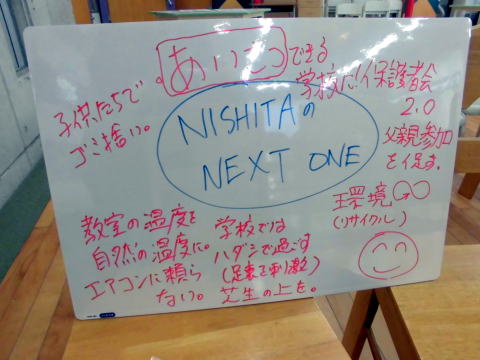 子供たちで
ゴミ捨い。
あいさつできる
学校に!
保護者会
2.0
父親参加
を促す。
NISHITAの
NEXT ONE
環境∞
(リサイクル)
教室の温度を
自然の温度に。
エアコンに頼ら
ない。
学校では
ハダシで過ごす
(足裏を刺激)
芝生の上を。